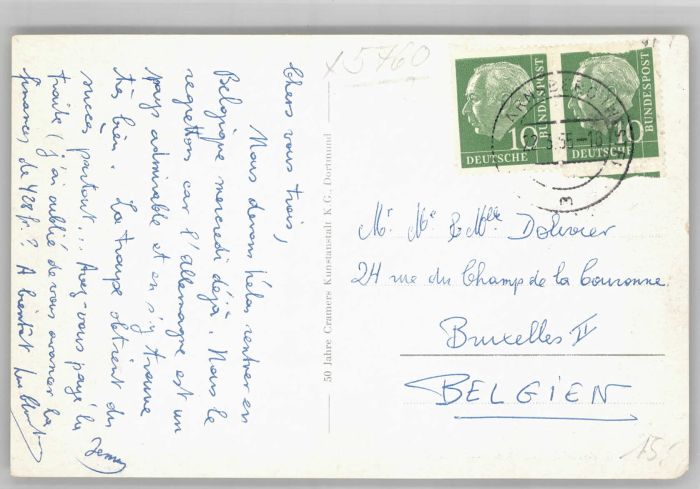 x 5760
Chers vous trois,
Nous devons hélas rentrer en
Belgique mercredi déjà. Nous le
regrettons car l'allemagne est un
pays admirable et on s'y trouve
très bien. La troupe obtient du
succès partout... Avez-vous payé la
traite (j'ai oublié de vous avancer la
finances de 428 fr.? A bientôt
50 Jahre Cramers Kunstanstalt K.G., Dortmund
10 BUNDESPOST
DEUTSCHE
10 BUNDESPOST
DEUTSCHE
Mr Me & Mlle Dolivier
24 rue du Champ de la Couronne
Bruxelles II
BELGIEN
15.-